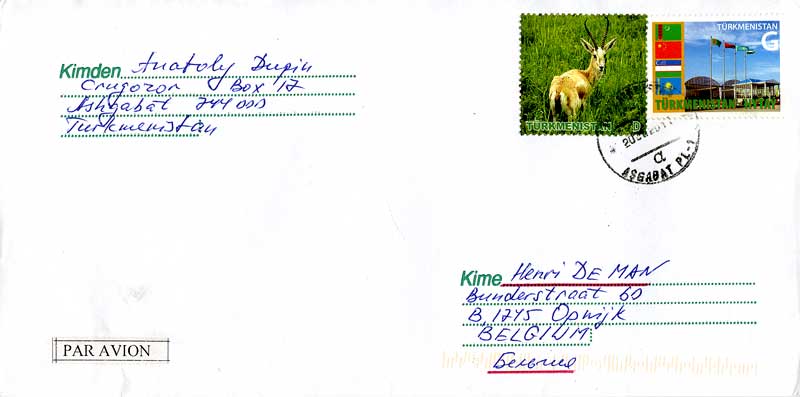 Kimden Anatoly Dupin
Box 17
Ashgabat 744000
Turkmenistan
TÜRKMENISTAN D
TÜRKMENISTAN
G
TÜRKMENISTAN - HYTAÝ
α
AŞGABAT PL-1
Kime Henri DE MAN
Bunderstraat 60
B. 1745 Opwijk
BELGIUM
Бельгия
PAR AVION